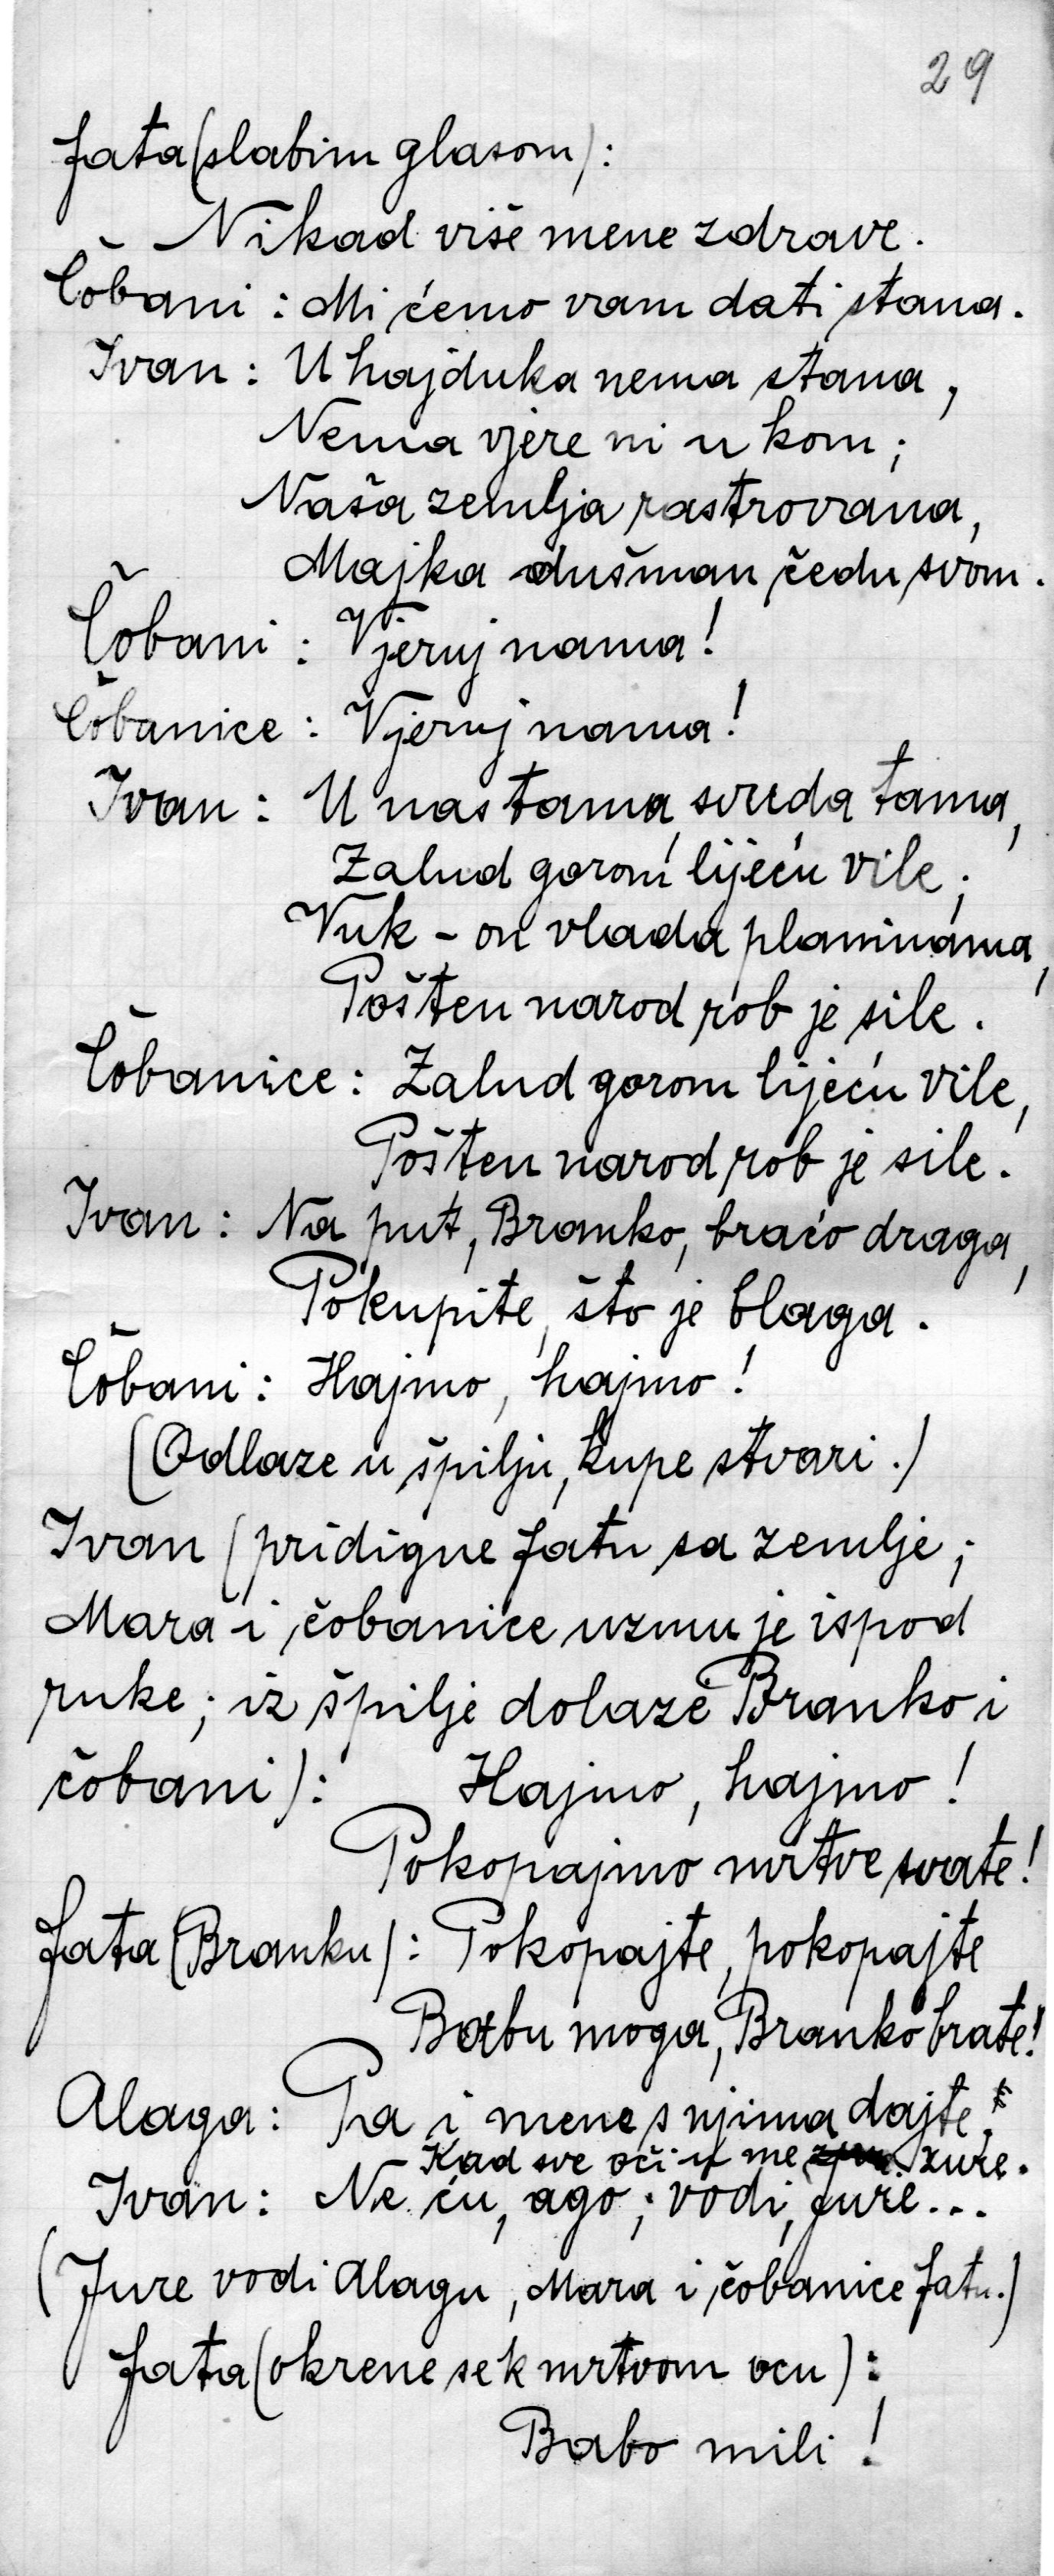 29
Fata (slabim glasom):
Nikad više mene zdrave.
Čobani: Mi ćemo vam dati stana.
Ivan: U hajduka nema stana,
Nema vjere ni u kom;
Naša zemlja rastrovana,
Majka dušman čedu svom.
Čobani: Vjeruj nama!
Čobanice: Vjeruj nama!
Ivan: U nas tama, svuda tama,
Zalud gorom lijeću vile;
Vuk - on vlada planinama,
Pošten narod rob je sile.
Čobanice: Zalud gorom lijeću vile,
Pošten narod rob je sile.
Ivan: Na put, Branko, braćo draga,
Pokupite, što je blaga.
Čobani: Hajmo, hajmo!
(Odlaze u špilju, kupe stvari.)
Ivan (pridigne Fatu sa zemlje;
Mara i čobanice uzmu je ispod
ruke; iz špilje dolaze Branko i
čobani): Hajmo, hajmo!
Pokopajmo mrtve svate!
Fata (Branku): Pokopajte, pokopajte
Babu moga, Branko brate!
Alaga: Pa i mene s njima dajte,
Kad sve oči u me zure.
Ivan: Ne ću, ago; vodi, Jure...
(Jure vodi Alagu, Mara i čobanice Fatu.)
Fata (okrene se k mrtvom ocu):
Babo mili!